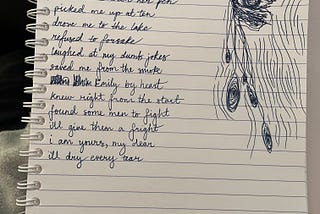 her pen
picked me up at ten
drove me to the lake
refused to forsake
laughed at my dumb jokes
saved me from the smoke
Emily by heart
knew right from the start
found some men to fight
ill give them a fright
i am yours, my dear
ill dry every tear